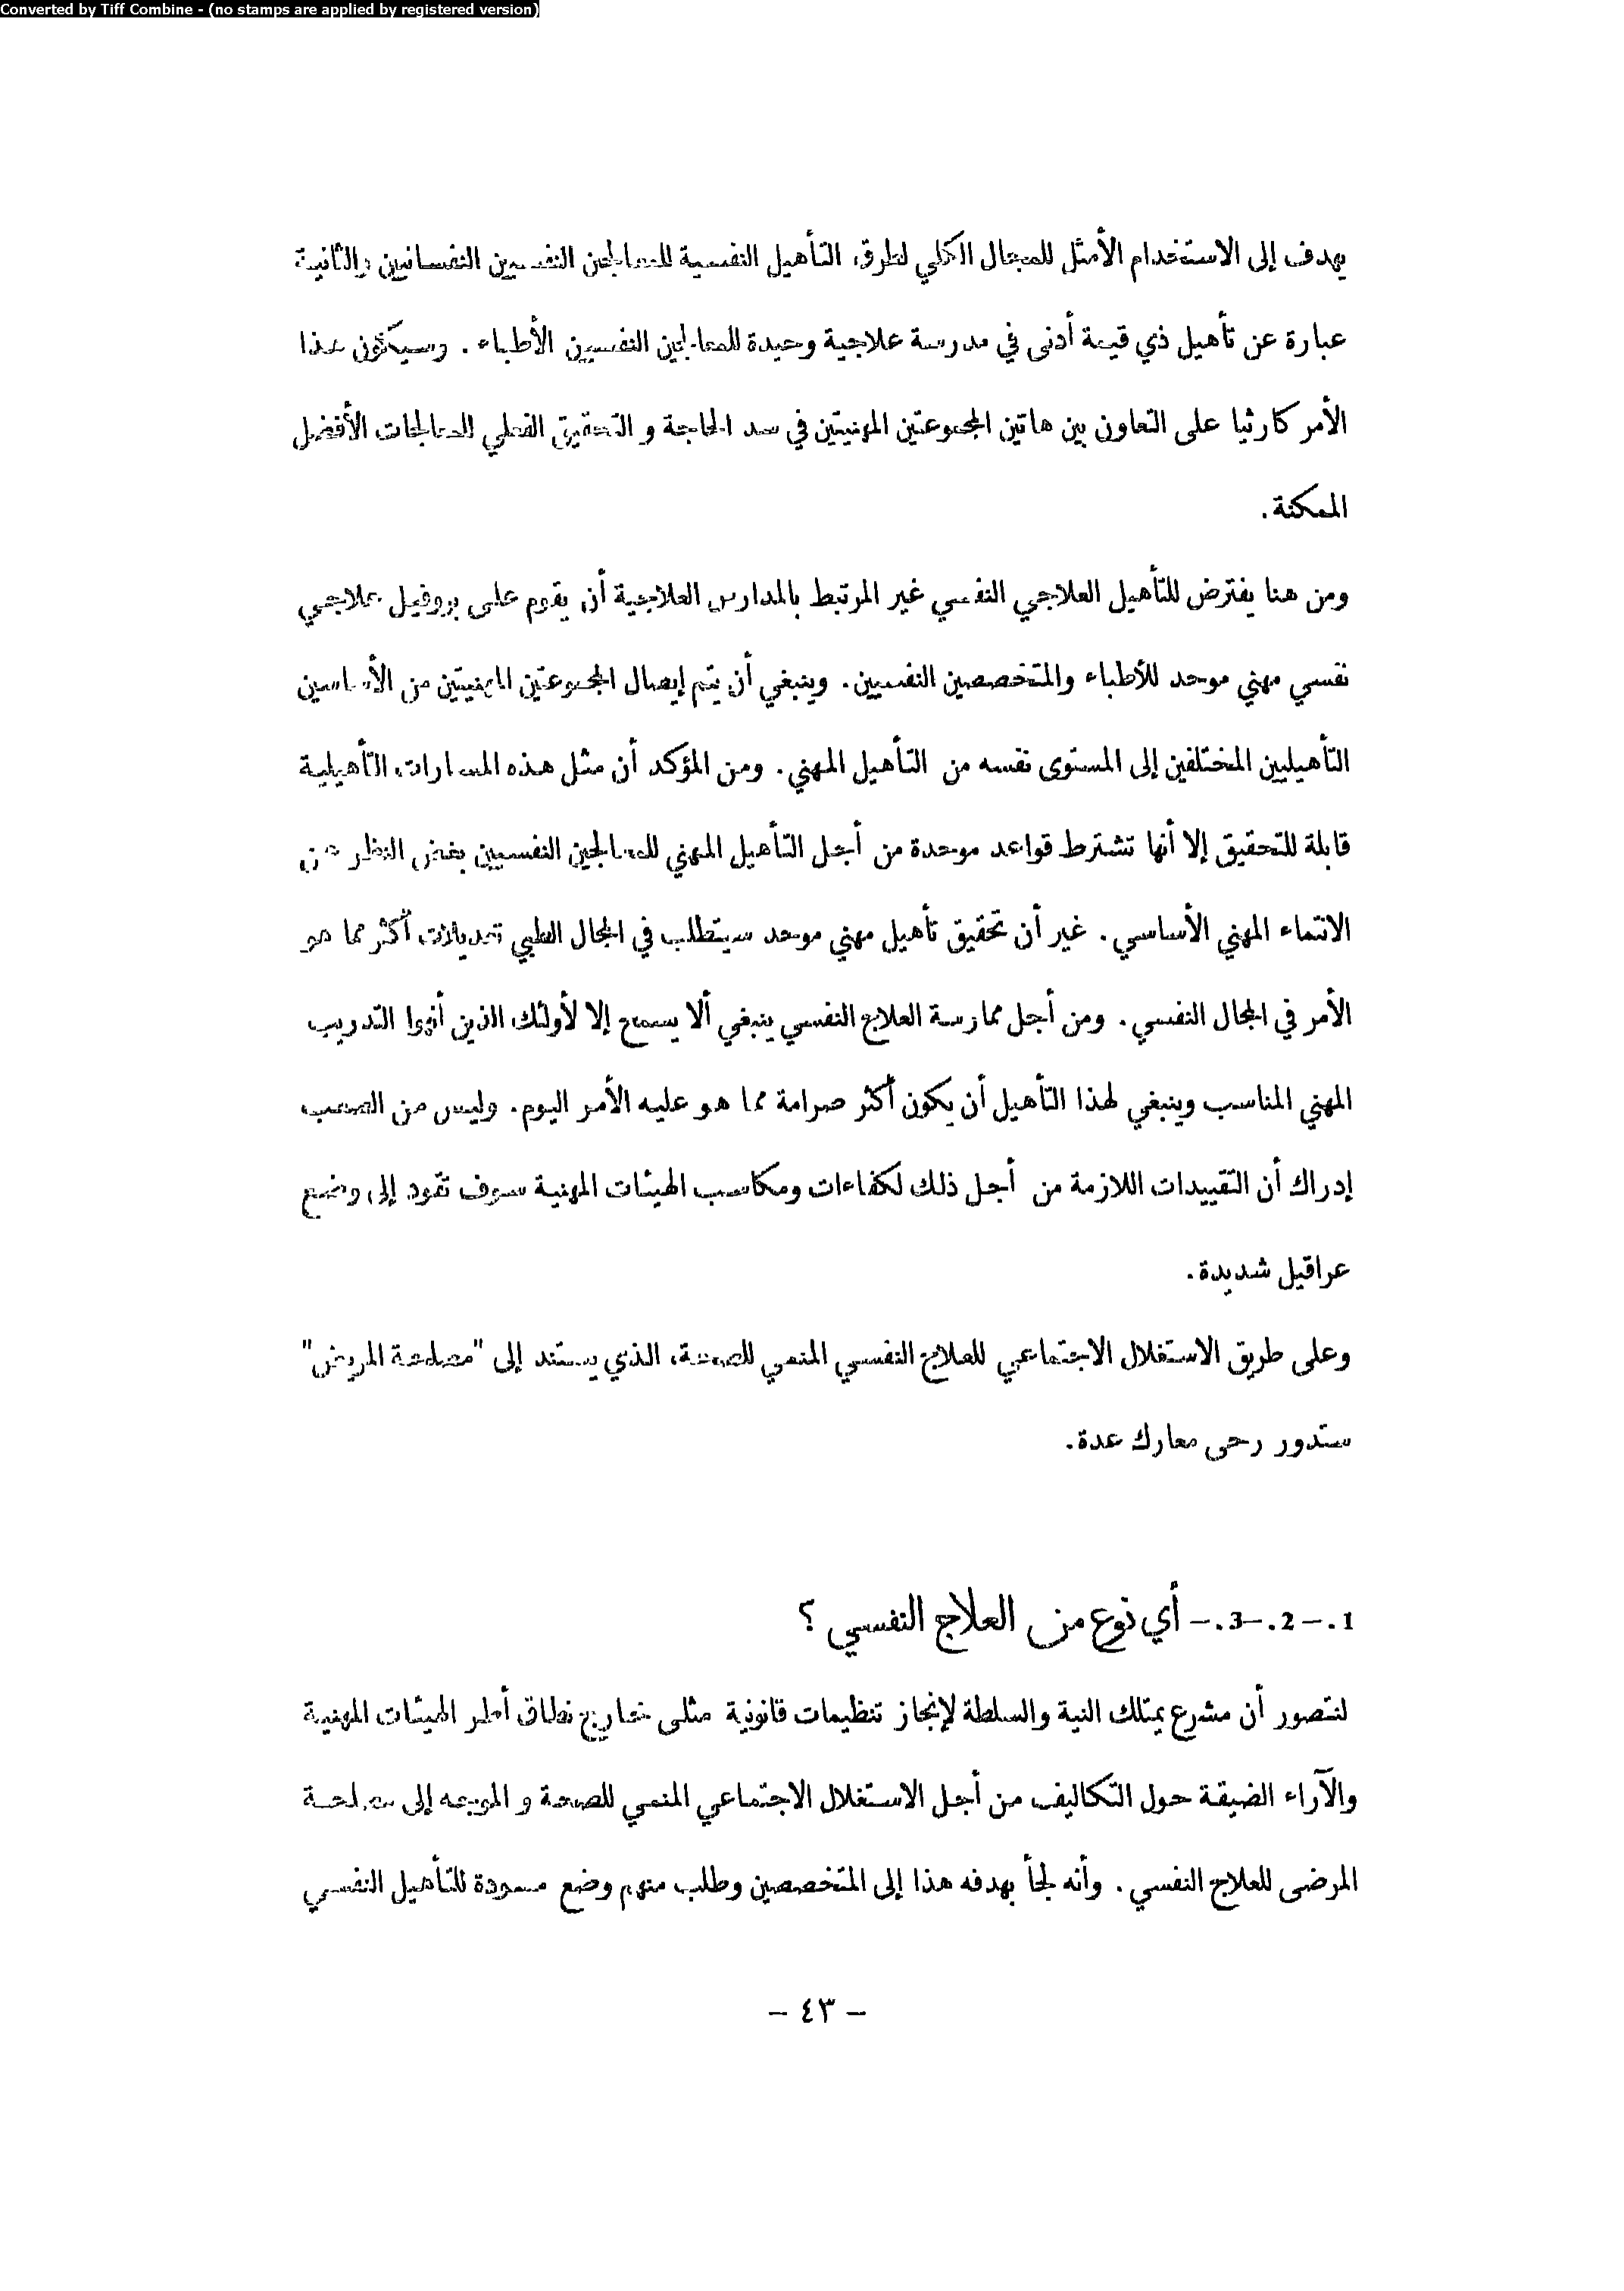 Converted by Tiff Combine - (no stamps are applied by registered version)
يهدف إلى الاستخدام الأمثل للمجال الكلي لطرق التأهيل النفسية للمعالجين النفسيين النفسانيين والثانية
عبارة عن تأهيل ذي قيمة أدنى في مدرسة علاجية وحيدة للمعالجين النفسيين الأطباء . وسيكون هذا
الأمر كارثيا على التعاون بين هاتين المجموعتين المهنيتين في سد الحاجة و التحقيق الفعلي للمعالجات الأفضل
الممكنة .
ومن هنا يفترض للتأهيل العلاجي النفسي غير المرتبط بالمدارس العلاجية أن يقوم على بروفيل علاجي
نفسي مهني موحد للأطباء والمتخصصين النفسيين . وينبغي أن يتم إيصال المجموعتين المهنيتين من الأساسين
التأهيليين المختلفين إلى المستوى نفسه من التأهيل المهني . ومن المؤكد أن مثل هذه المسارات التأهيلية
قابلة للتحقيق إلا أنها تشترط قواعد موحدة من أجل التأهيل المهني للمعالجين النفسيين بغض النظر عن
الانتماء المهني الأساسي . غير أن تحقيق تأهيل مهني موحد سيتطلب في المجال الطبي تعديلات أكثر مما هو
الأمر في المجال النفسي . ومن أجل ممارسة العلاج النفسي ينبغي ألا يسمح إلا لأولئك الذين أنهوا التدريب
المهني المناسب وينبغي لهذا التأهيل أن يكون أكثر صرامة مما هو عليه الأمر اليوم . وليس من الصعب
إدراك أن التقييدات اللازمة من أجل ذلك لكفاءات ومكاسب الهيئات المهنية سوف تقود إلى وضع
عراقيل شديدة .
وعلى طريق الاستغلال الاجتماعي للعلاج النفسي المنمي للصحة، الذي يستند إلى "مصلحة المريض"
ستدور رحى معارك عدة.
1 . – 2 . –3 . – أي نوع من العلاج النفسي ؟
لنتصور أن مشرع يمتلك النية والسلطة لإنجاز تنظيمات قانونية مثلى خارج نطاق أطر الهيئات المهنية
والآراء الضيقة حول التكاليف من أجل الاستغلال الاجتماعي المنمي للصحة و الموجه إلى مصلحة
المرضى للعلاج النفسي . وأنه لجأ بهدفه هذا إلى المتخصصين وطلب منهم وضع مسودة للتأهيل النفسي
– ٤٣ –